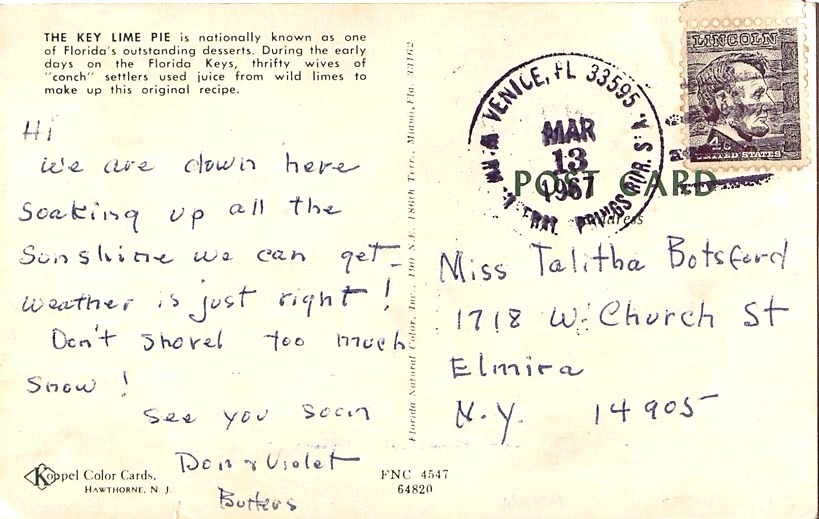 THE KEY LIME PIE is nationally known as one
of Florida's outstanding desserts. During the early
days on the Florida Keys, thrifty wives of
"conch" settlers used juice from wild limes to
make up this original recipe.
Hi
We are down here
Soaking up all the
Sunshine we can get-
Weather is just right!
Don't shovel too much
Snow!
See you soon
Don & Violet
Butters
Koppel Color Cards,
HAWTHORNE, N. J.
FNC 4547
64820
Florida Natural Color, Inc., 190 N.E. 186th Terr., Miami, Fla. 33162
VENICE, FL 33595
MAR
13
1967
LINCOLN
4c
UNITED STATES
POST CARD
Address
Miss Talitha Botsford
1718 W. Church St
Elmira
N.Y. 14905